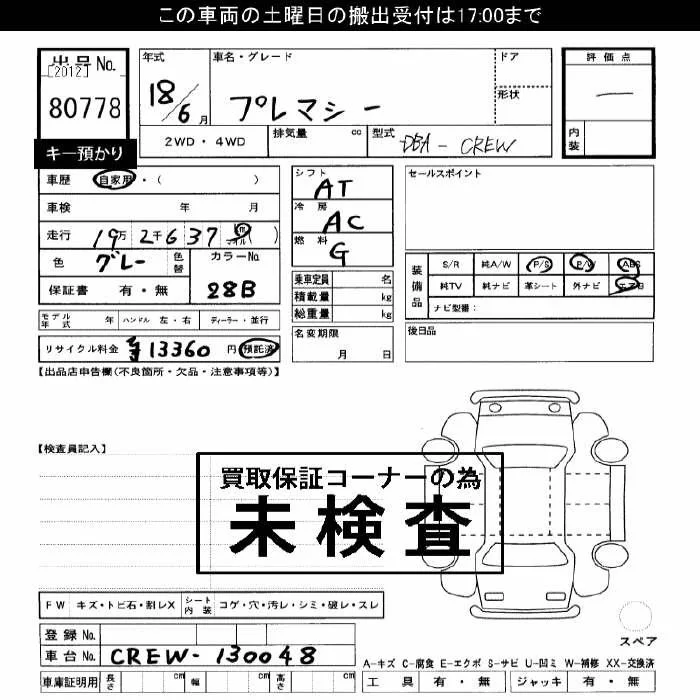 この車両の土曜日の搬出受付は17:00まで
出品No.
[2012]
80778
キー預かり
年式
18/6月
車名・グレード
プレマシー
ドア
形状
評価点
―
内装
2WD・4WD
排気量 cc
型式 DBA-CREW
車歴 自家用・( )
車検 年 月
走行 19万2千637 km マイル )
色 グレー 色替
カラーNo. 28B
保証書 有・無
モデル年式 年 ハンドル 左・右 ディーラー・並行
リサイクル料金 ¥13360 円 預託済
シフト AT
冷房 AC
燃料 G
乗車定員 名
積載量 kg
総重量 kg
名変期限
月 日
セールスポイント
装備品
S/R 純A/W P/S P/W ABS
純TV 純ナビ 革シート 外ナビ エアB
ナビ型番:
後日品
【出品店申告欄(不良箇所・欠品・注意事項等)】
【検査員記入】
買取保証コーナーの為
未検査
FW キズ・トビ石・割レX シート内装 コゲ・穴・汚レ・シミ・破レ・スレ
登録No.
車台No. CREW-130048
車庫証明用 長さ cm 幅 cm 高さ cm
スペア
A-キズ C-腐食 E-エクボ S-サビ U-凹ミ W-補修 XX-交換済
工具 有・無 ジャッキ 有・無